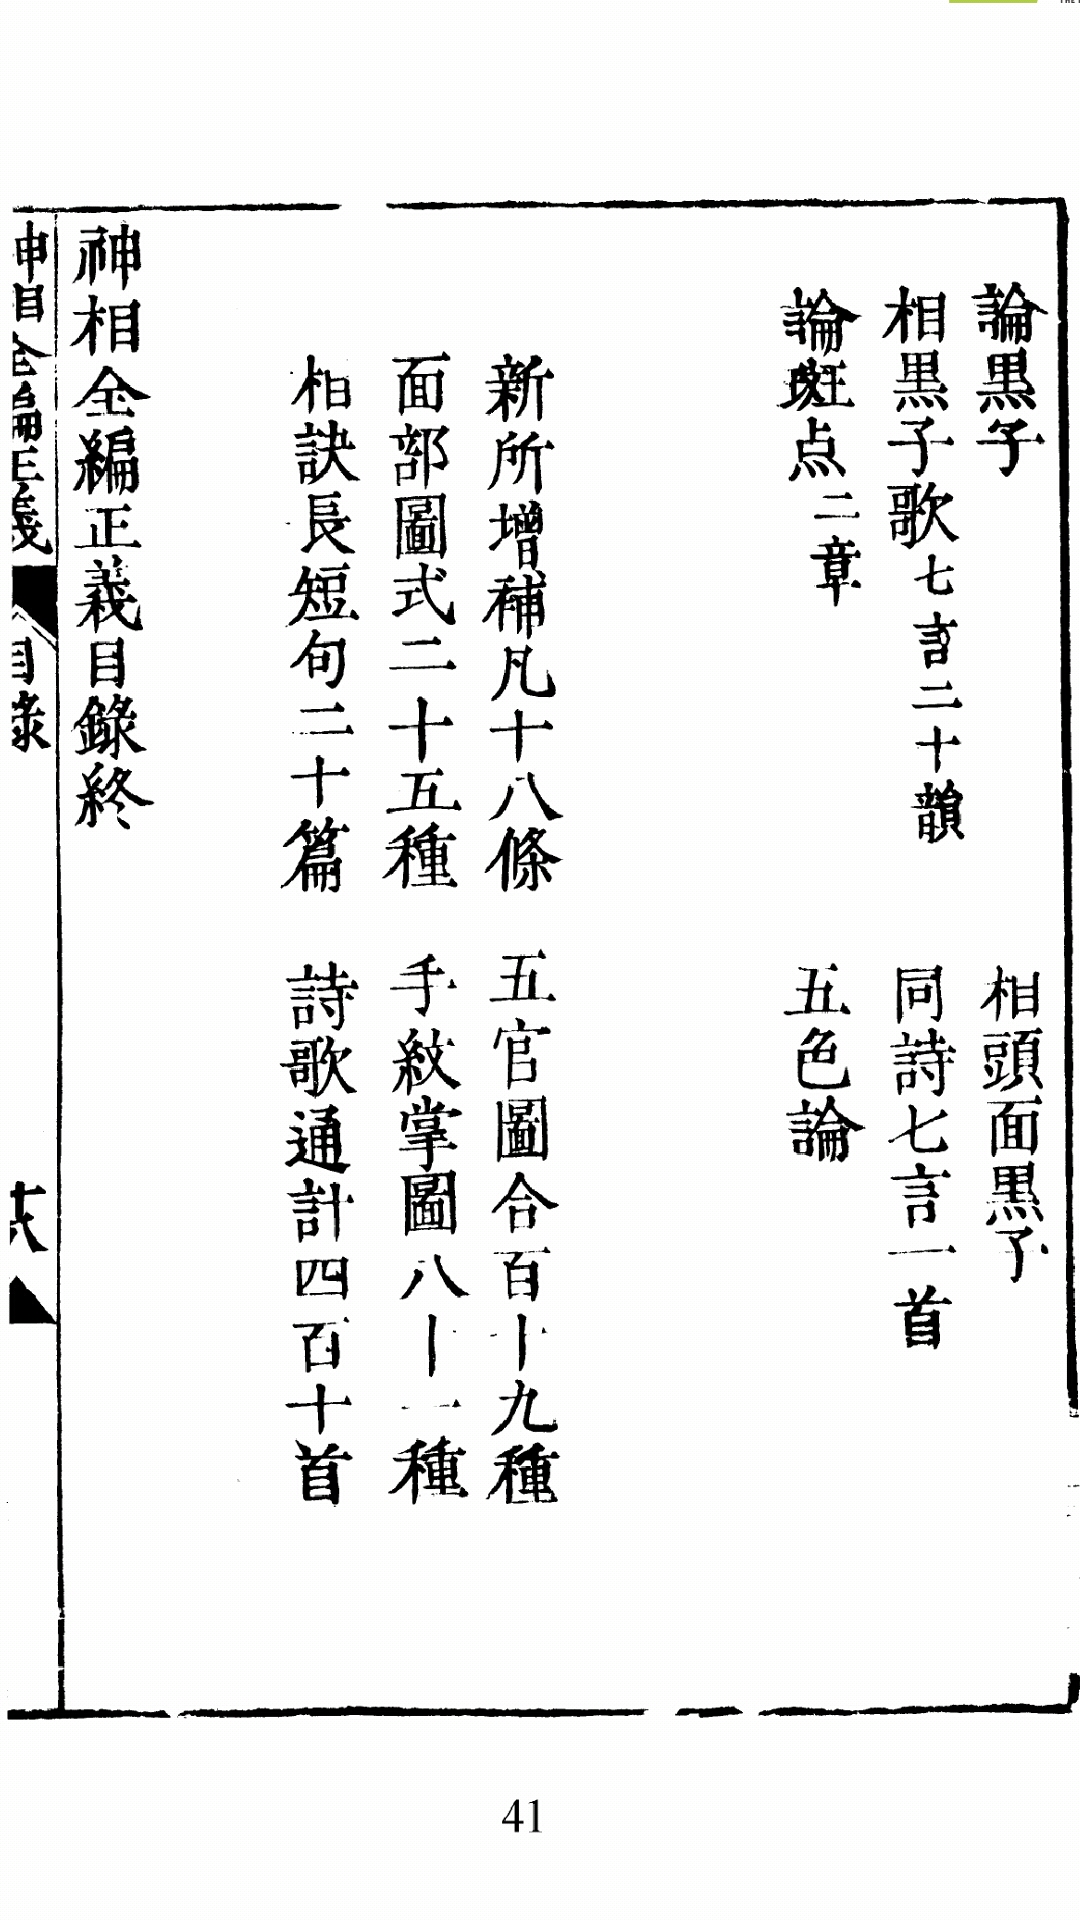 論黒子　相頭面黒子
相黒子歌七言二十韻　同詩七言一首
論斑点二章　五色論
新所增補凡十八條　五官圖合百十九種
面部圖式二十五種　手紋掌圖八十一種
相訣長短句二十篇　詩歌通計四百十首
神相全編正義目錄終
神相全編正義　目錄　十八
41